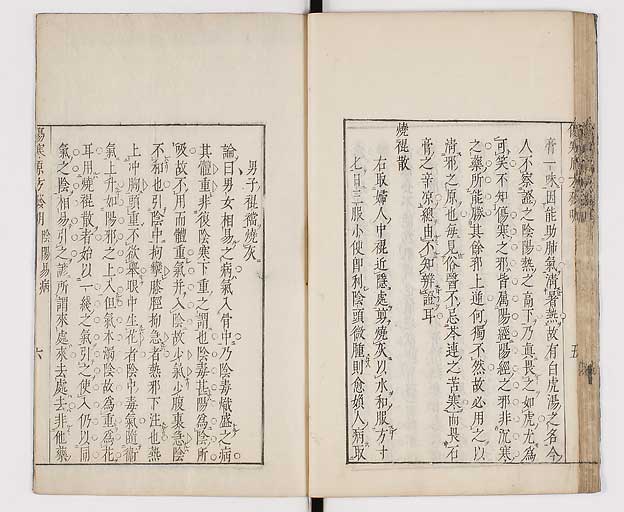 膏一味因能助肺氣淸暑熱故有白虎湯之名今
人不察證之陰陽熱之高下乃眞畏之如虎尤爲
可笑不知傷寒之邪皆屬陽經陽經之邪非沉寒
之藥所能勝其餘邪上逆何獨不然故必用之以
淸邪之原也每見俗醫不忌芩連之苦寒而畏石
膏之辛凉總由不知辨證耳
燒裩散
右取婦人中裩近隱處剪燒灰以水和服方寸
七日三服小便卽利陰頭微腫則愈婦人病取
五
男子裩襠燒灰
論曰男女相易之病氣入骨中乃陰毒熾盛之病
其體重非後陰寒下重之謂也陰毒甚陽爲陰所
吸故不用而體重氣幷入陰故少氣少腹裏急陰
不和也引陰中拘攣膝脛拘急者熱邪下注也熱
上冲胸頭重不欲擧眼中生花者陰中毒氣隨衞
氣上升如陽邪之上入但氣本濁陰故爲重爲花
耳用燒裩散者始以一綫之氣引之使入仍以同
氣之陰相易引之該所謂來處來去處去非他藥
傷寒原方發明 陰陽易病
六